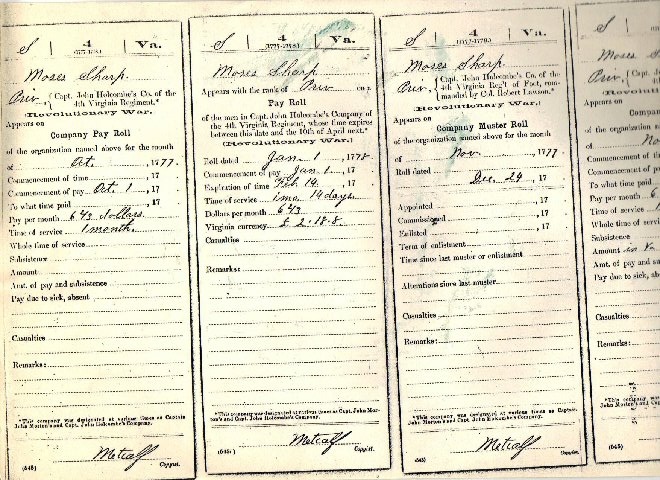 S | 4 | Va.
(1777-1778)
Moses Sharp
Priv, { Capt. John Holcombe's Co. of the
4th Virginia Regiment.*
(Revolutionary War.)
Appears on
Company Pay Roll
of the organization named above for the month
of Oct., 1777.
Commencement of time , 17
Commencement of pay Oct 1 , 17
To what time paid , 17
Pay per month 6 2/3 dollars
Time of service 1 month.
Whole time of service
Subsistence
Amount
Amt. of pay and subsistence
Pay due to sick, absent
Casualties
Remarks:
*This company was designated at various times as Captain
John Morton's and Capt. John Holcombe's Company.
Metcalf
(545) Copyist.
S | 4 | Va.
(1777-1778)
Moses Sharp
Appears with the rank of Priv on a
Pay Roll
of the men in Capt. John Holcombe's Company of
the 4th Virginia Regiment, whose time expires
between this date and the 10th of April next.*
(Revolutionary War.)
Roll dated Jan. 1 , 1778
Commencement of pay Jan. 1 , 17
Expiration of time Feb. 14 , 17
Time of service 1 mo. 14 days
Dollars per month 6 2/3
Virginia currency £ 2.18.8.
Casualties
Remarks:
*This company was designated at various times as Capt. John Mor-
ton's and Capt. John Holcombe's Company.
Metcalf
(545) Copyist.
S | 4 | Va.
(1777-1778)
Moses Sharp
Priv, { Capt. John Holcombe's Co. of the
4th Virginia Reg't of Foot, com-
manded by Col. Robert Lawson.*
(Revolutionary War.)
Appears on
Company Muster Roll
of the organization named above for the month
of Nov. , 1777
Roll dated
Dec. 24 , 17
Appointed , 17
Commissioned , 17
Enlisted , 17
Term of enlistment
Time since last muster or enlistment
Alterations since last muster
Casualties
Remarks:
*This company was designated at various times as Captain
John Morton's and Capt. John Holcombe's Company.
Metcalf
(545) Copyist.
S |
(177
Moses S
Priv, { Capt. J
4th
(Revolu
Appears on
Compan
of the organization nam
of No
Commencement of time
Commencement of pay
To what time paid
Pay per month 6
Time of service
Whole time of service
Subsistence
Amount
Amt. of pay and subsi
Pay due to sick, abse
Casualties
Remarks:
*This company was des
John Morton's and Capt. Jo
(545)